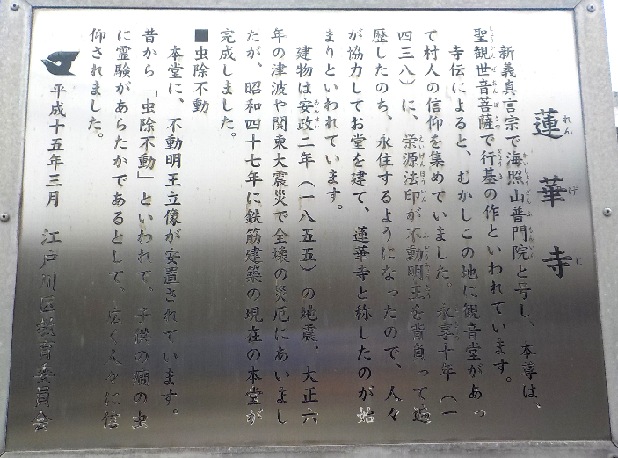 蓮華寺
新義真言宗で海照山普門院と号し、本尊は、
聖観世音菩薩で行基の作といわれています。
寺伝によると、むかしこの地に観音堂があっ
て村人の信仰を集めていました。永享十年(一
四三八)に、栄源法印が不動明王を背負って遍
歴したのち、永住するようになったので、人々
が協力してお堂を建て、蓮華寺と称したのが始
まりといわれています。
建物は安政二年(一八五五)の地震、大正六
年の津波や関東大震災で全壊の災厄にあいまし
たが、昭和四十七年に鉄筋建築の現在の本堂が
完成しました。
■虫除不動
本堂に、不動明王立像が安置されています。
昔から「虫除不動」といわれて、子供の疳の虫
に霊験があらたかであるとして、広く人々に信
仰されました。
平成十五年三月 江戸川区教育委員会